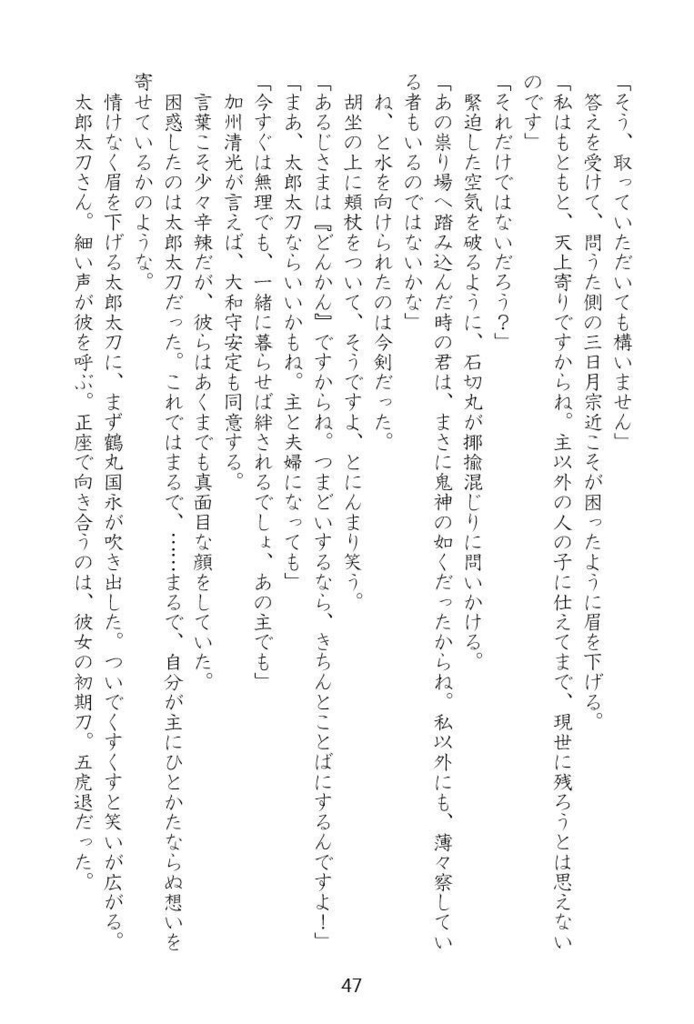 「そう、取っていただいても構いません」
答えを受けて、問うた側の三日月宗近こそが困ったように眉を下げる。
「私はもともと、天上寄りですからね。主以外の人の子に仕えてまで、現世に残ろうとは思えない
のです」
「それだけではないだろう？」
緊迫した空気を破るように、石切丸が揶揄混じりに問いかける。
「あの祟り場へ踏み込んだ時の君は、まさに鬼神の如くだったからね。私以外にも、薄々察してい
る者もいるのではないかな」
ね、と水を向けられたのは今剣だった。
胡坐の上に頬杖をついて、そうですよ、とにんまり笑う。
「あるじさまは『どんかん』ですからね。つまどいするなら、きちんとことばにするんですよ！」
「まあ、太郎太刀ならいいかもね。主と夫婦になっても」
「今すぐは無理でも、一緒に暮らせば絆されるでしょ、あの主でも」
加州清光が言えば、大和守安定も同意する。
言葉こそ少々辛辣だが、彼らはあくまでも真面目な顔をしていた。
困惑したのは太郎太刀だった。これではまるで、……まるで、自分が主にひとかたならぬ想いを
寄せているかのような。
情けなく眉を下げる太郎太刀に、まず鶴丸国永が吹き出した。ついでくすくすと笑いが広がる。
太郎太刀さん。細い声が彼を呼ぶ。正座で向き合うのは、彼女の初期刀。五虎退だった。
47